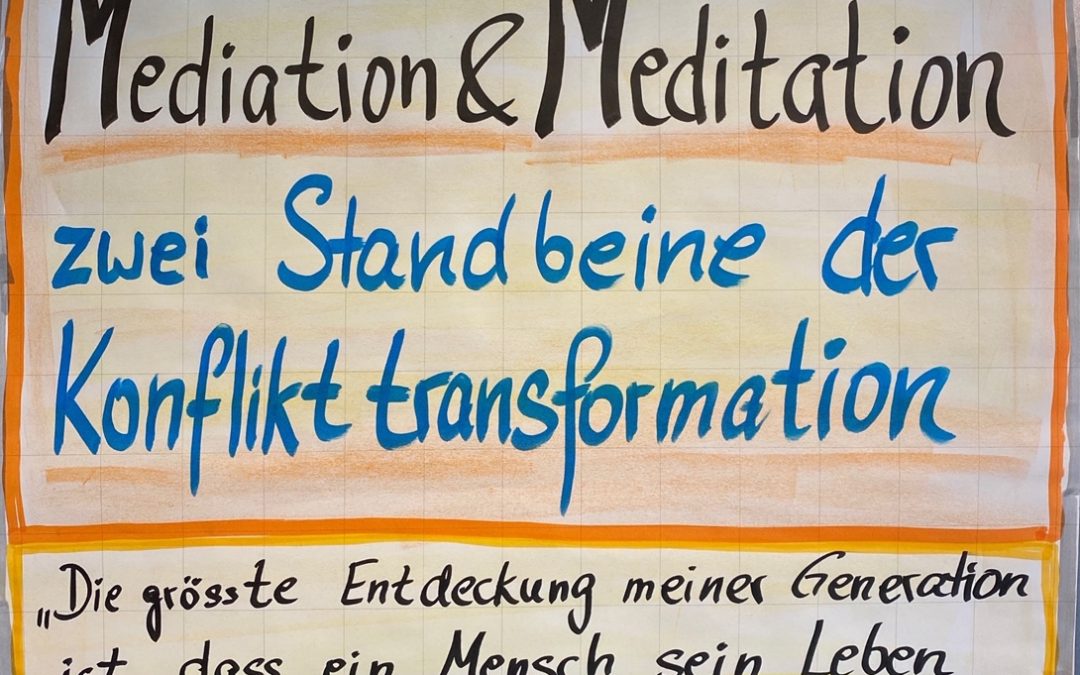 Mediation & Meditation
zwei Standbeine der
Konflikttransformation
„Die grösste Entdeckung meiner Generation
ist, dass ein Mensch sein Leben